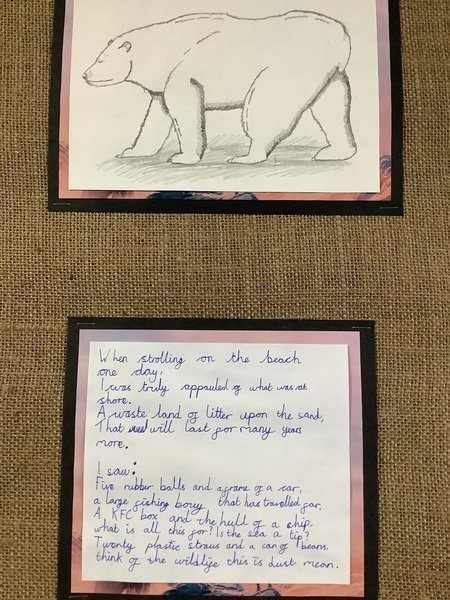 When strolling on the beach
one day,
I was truly appauled of what was at
shore.
A waste land of litter upon the sand,
That will last for many years
more.
I saw:
Five rubber balls and a frame of a car,
a large fishing bouy that has travelled far.
A KFC box and the hull of a ship,
what is all this for? Is the sea a tip?
Twenty plastic straws and a can of beans,
think of the wildlife this is dust mean.